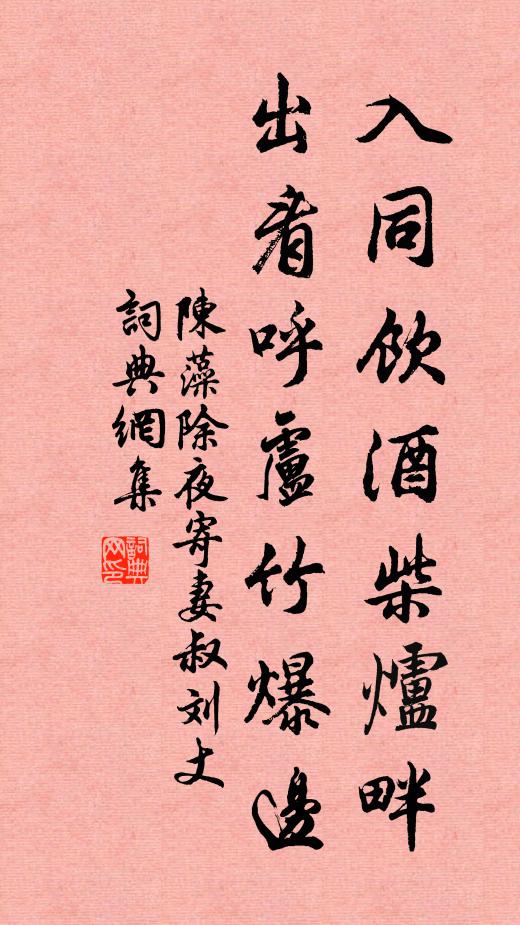 入同饮酒柴爐畔
出看呼盧竹爆邊
陳藻除夜寄妻叔刘丈
詞典網集
詞典
网印